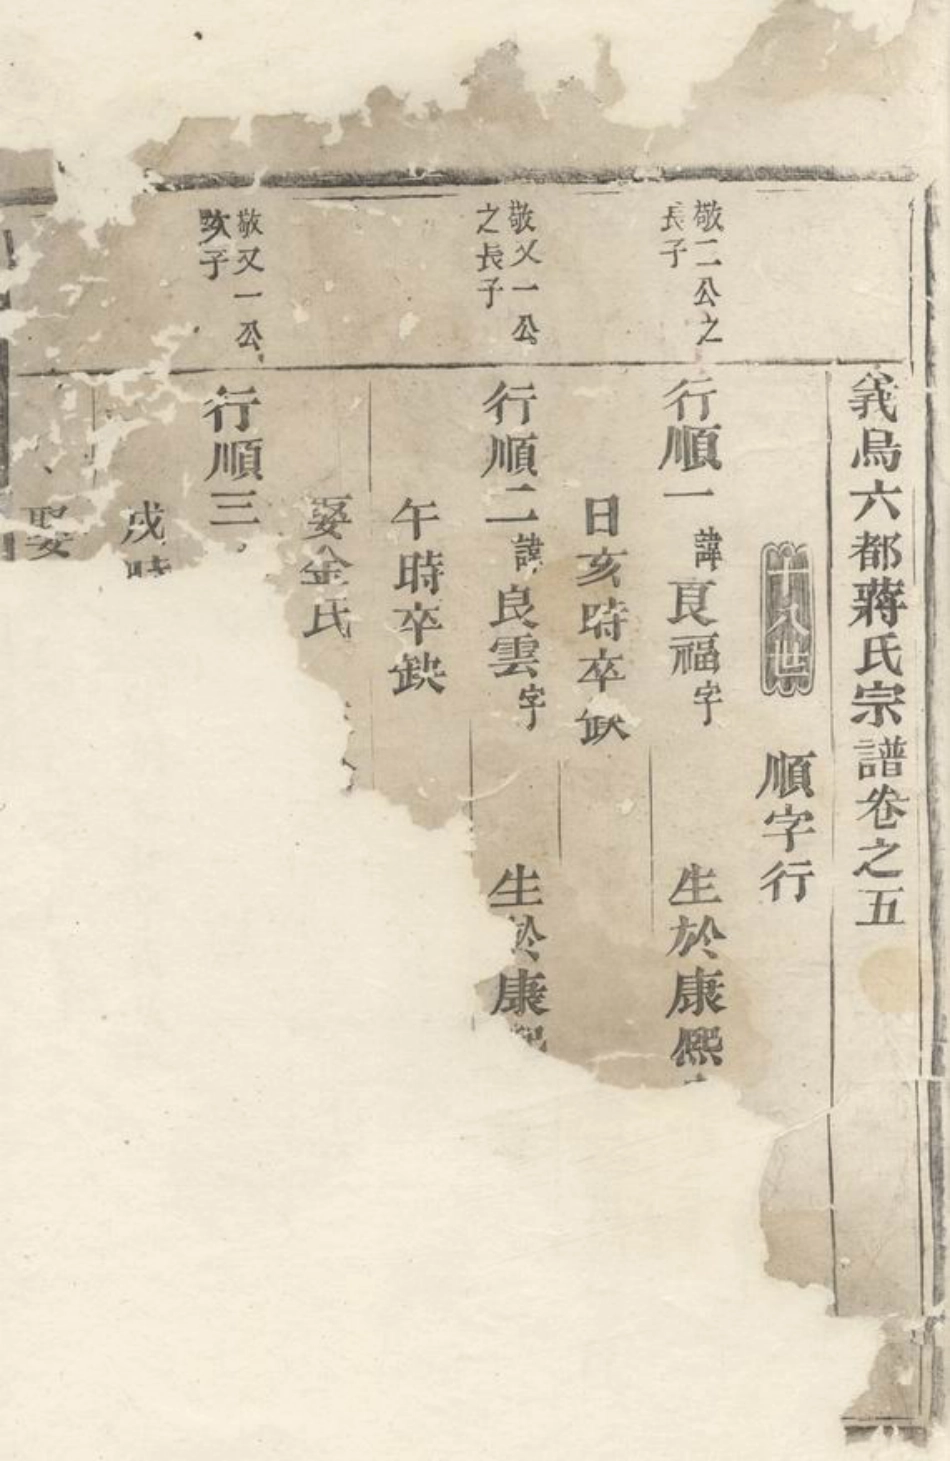 義烏六都蔣氏宗譜卷之五
十八世 順字行
敬二公之
長子
行順一諱良福字 生於康熙
日亥時卒缺
敬又一公
之長子
行順二諱良雲字 生於康熙
午時卒缺
娶金氏
敬又一公
次子
行順三
戌時
娶